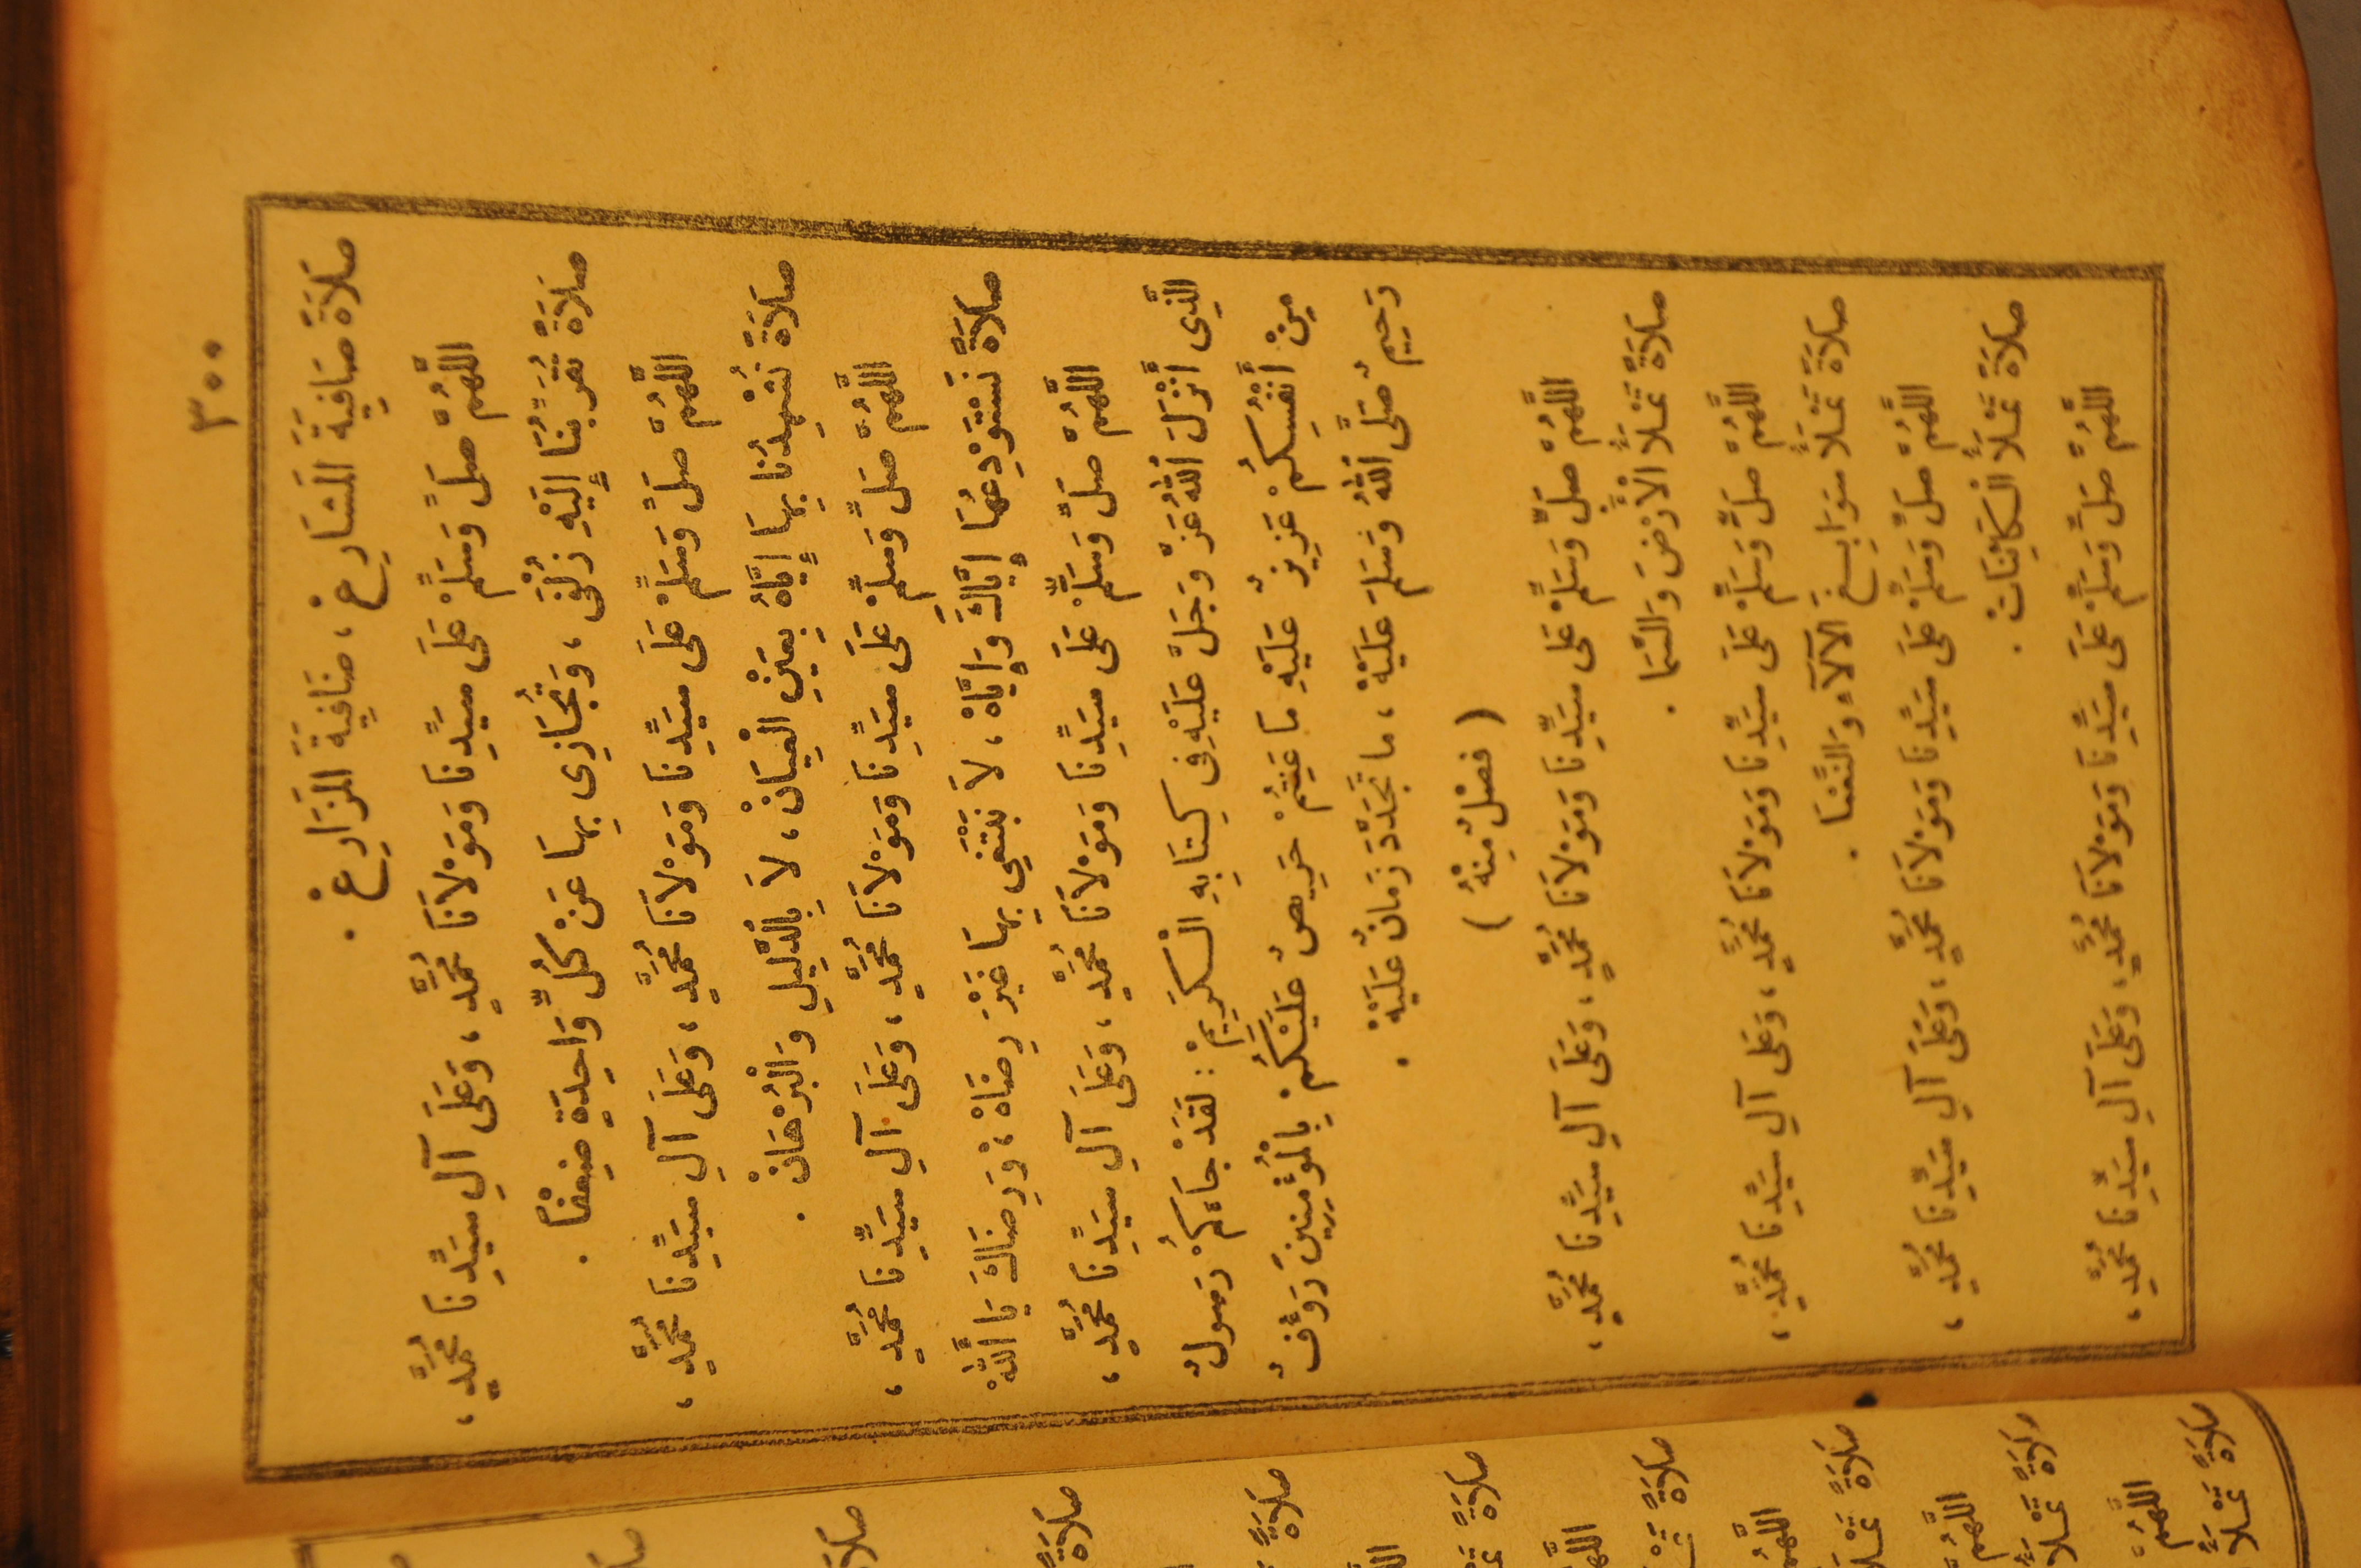 ٣٠٠
صَلَاةً صَافِيَةَ الْمَشَارِعْ، ضَافِيَةَ الْمَزَارِعْ.
اللَّهُمَّ صَلِّ وَسَلِّمْ عَلَى سَيِّدِنَا وَمَوْلَانَا مُحَمَّدٍ، وَعَلَى آلِ سَيِّدِنَا مُحَمَّدٍ،
صَلَاةً تُقَرِّبُنَا إِلَيْهِ زُلْفَى، وَتُجَازِى بِهَا عَنْ كُلِّ وَاحِدَةٍ ضِعْفًا.
اللَّهُمَّ صَلِّ وَسَلِّمْ عَلَى سَيِّدِنَا وَمَوْلَانَا مُحَمَّدٍ، وَعَلَى آلِ سَيِّدِنَا مُحَمَّدٍ،
صَلَاةً تُشْهِدُنَا بِهَا إِيَّاهُ بِعَيْنِ الْعِيَانْ، لَا بِالدَّلِيلِ وَالْبُرْهَانْ.
اللَّهُمَّ صَلِّ وَسَلِّمْ عَلَى سَيِّدِنَا وَمَوْلَانَا مُحَمَّدٍ، وَعَلَى آلِ سَيِّدِنَا مُحَمَّدٍ،
صَلَاةً نَسْتَوْدِعُهَا إِيَّاكَ وَإِيَّاهْ، لَا نَبْتَغِي بِهَا غَيْرَ رِضَاهْ، وَرِضَاكَ يَا أَللَّهْ
اللَّهُمَّ صَلِّ وَسَلِّمْ عَلَى سَيِّدِنَا وَمَوْلَانَا مُحَمَّدٍ، وَعَلَى آلِ سَيِّدِنَا مُحَمَّدٍ،
الَّذِى أَنْزَلَ اللهُ عَزَّ وَجَلَّ عَلَيْهِ فِى كِتَابِهِ الْكَرِيمْ: لَقَدْ جَاءَكُمْ رَسُولٌ
مِنْ أَنْفُسِكُمْ عَزِيزٌ عَلَيْهِ مَا عَنِتُّمْ حَرِيصٌ عَلَيْكُمْ بِالْمُؤْمِنِينَ رَؤُفٌ
رَحِيمٌ صَلَّى اللهُ وَسَلَّمَ عَلَيْهْ، مَا تَجَدَّدَ زَمَانٌ عَلَيْهْ.
(فَصْلٌ مِنْهُ)
اللَّهُمَّ صَلِّ وَسَلِّمْ عَلَى سَيِّدِنَا وَمَوْلَانَا مُحَمَّدٍ، وَعَلَى آلِ سَيِّدِنَا مُحَمَّدٍ،
صَلَاةً تَمْلَأُ الْأَرْضَ وَالسَّمَا.
اللَّهُمَّ صَلِّ وَسَلِّمْ عَلَى سَيِّدِنَا وَمَوْلَانَا مُحَمَّدٍ، وَعَلَى آلِ سَيِّدِنَا مُحَمَّدٍ،
صَلَاةً تَمْلَأُ سَوَابِغَ الْآلَاءِ وَالنَّعْمَا.
اللَّهُمَّ صَلِّ وَسَلِّمْ عَلَى سَيِّدِنَا وَمَوْلَانَا مُحَمَّدٍ، وَعَلَى آلِ سَيِّدِنَا مُحَمَّدٍ،
صَلَاةً تَمْلَأُ الْكَائِنَاتْ.
اللَّهُمَّ صَلِّ وَسَلِّمْ عَلَى سَيِّدِنَا وَمَوْلَانَا مُحَمَّدٍ، وَعَلَى آلِ سَيِّدِنَا مُحَمَّدٍ،
صَلَاةً
صَلَاةً
صَلَاةً
صَلَاةً
اللَّهُمَّ
صَلَاةً
اللَّهُمَّ
صَلَاةً
اللَّهُمَّ
صَلَاةً تَمْلَأُ